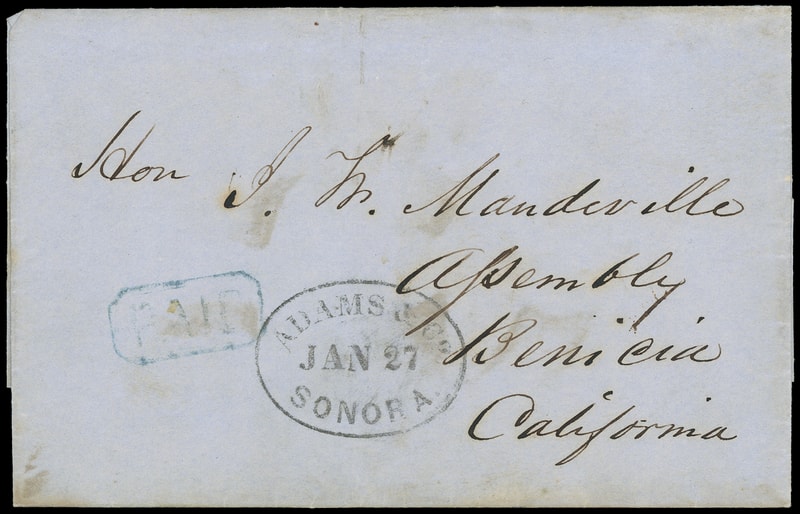 Hon J. W. Mandeville
Assembly
Benicia
California
PAID
ADAMS & Co.
JAN 27
SONORA.